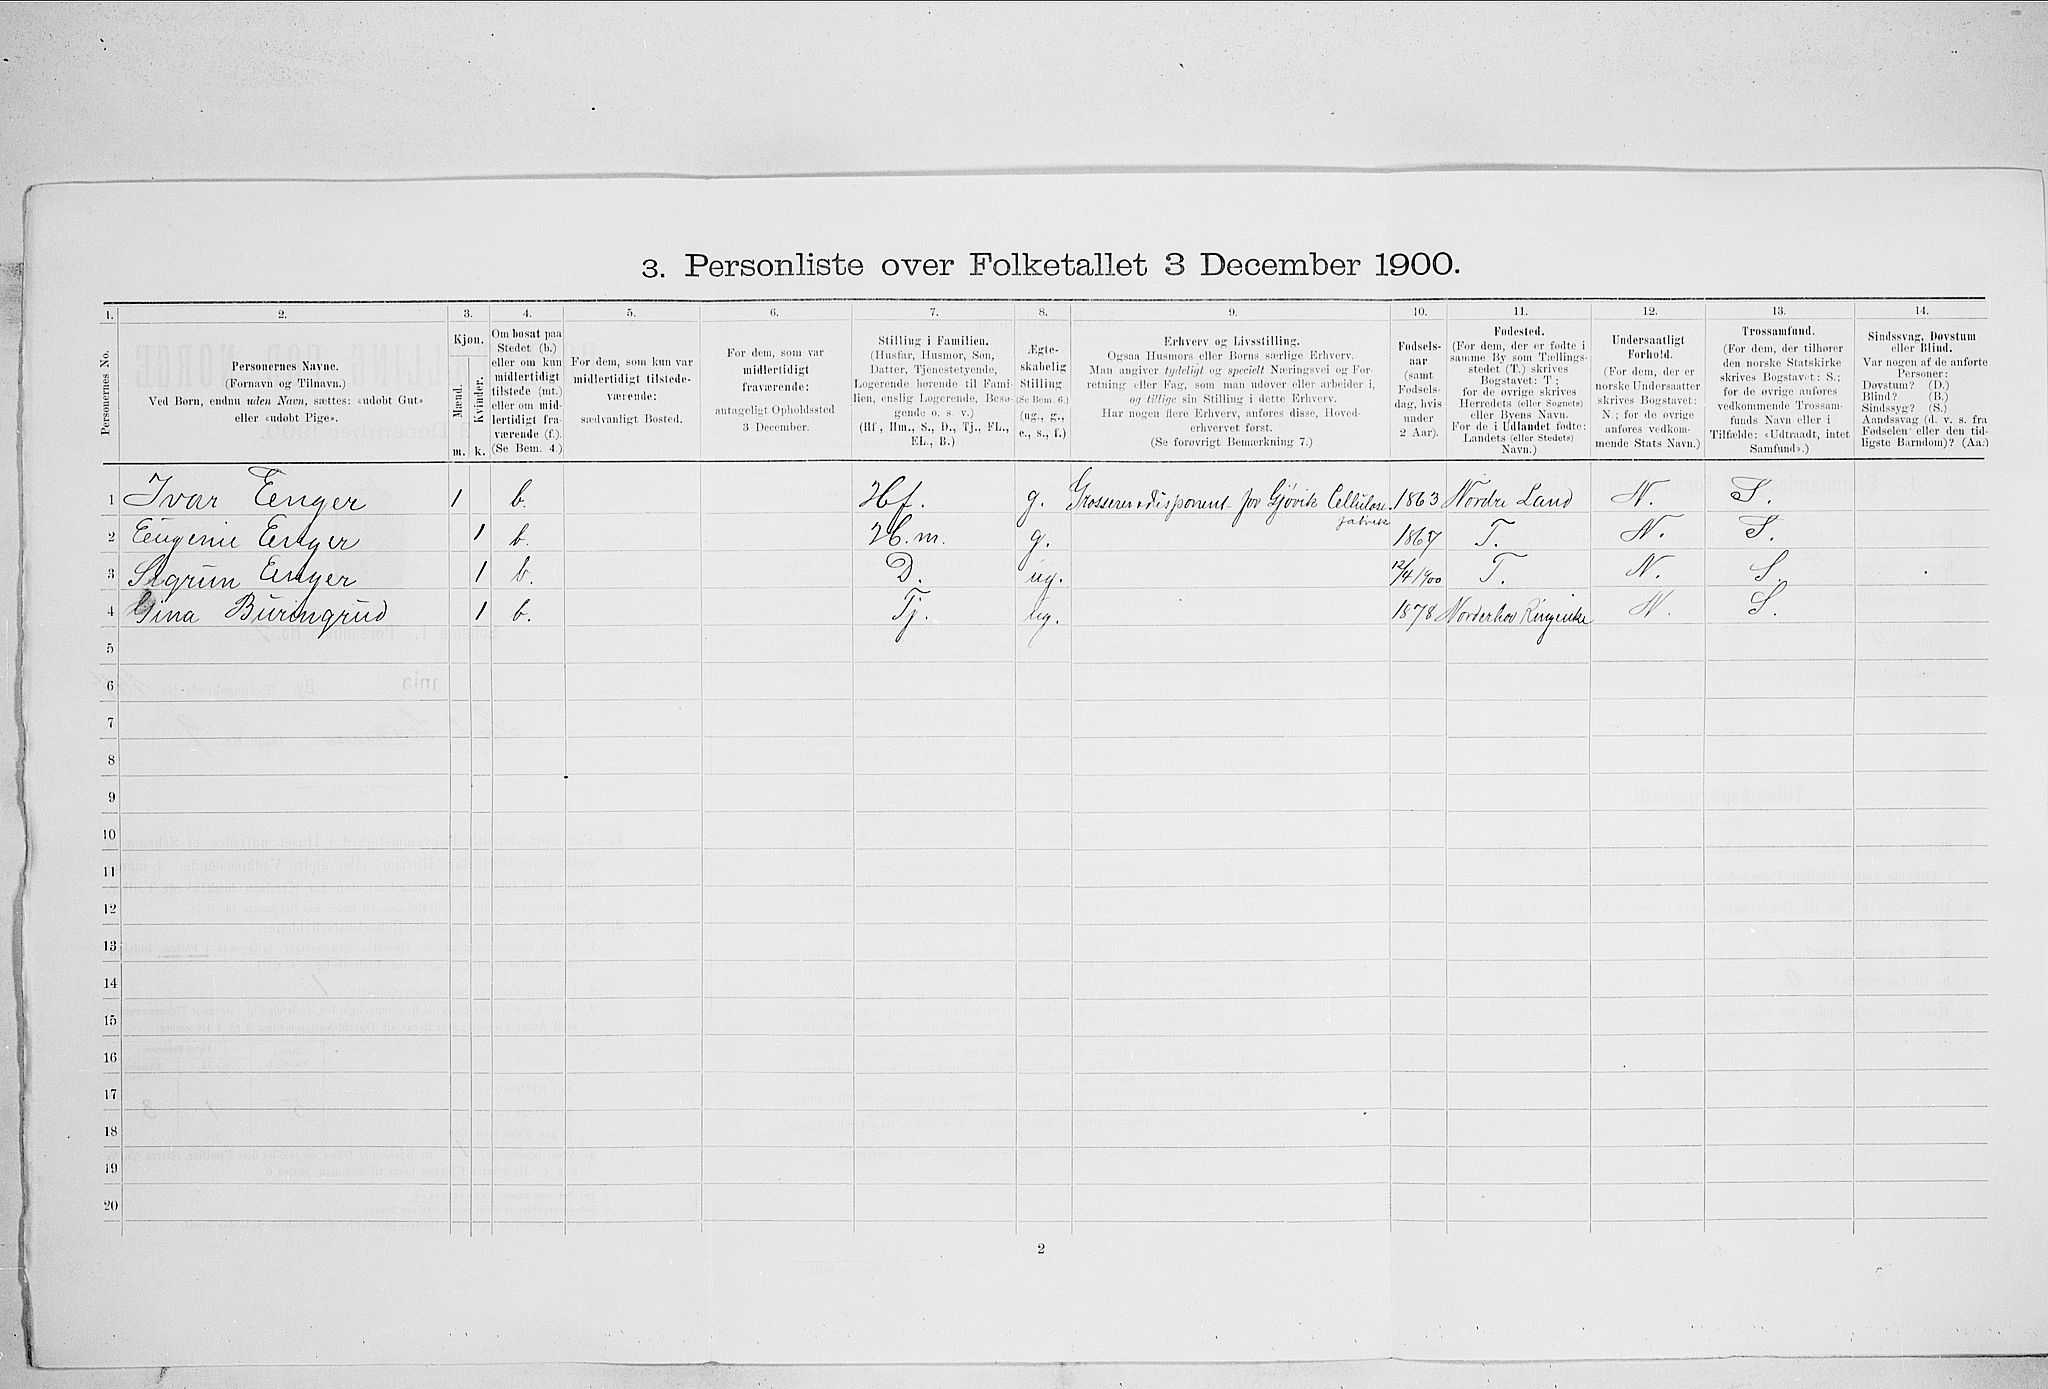 3. Personliste over Folketallet 3 December 1900.
1. 2. 3. 4. 5. 6. 7. 8. 9. 10. 11. 12. 13. 14.
Personernes No.
Personernes Navne.
(Fornavn og Tilnavn.)
Ved Børn, endnu uden Navn, sættes: «udobt Gut»
eller «udobt Pige».
Kjøn.
Mænd.
Kvinder.
m. k.
Om bosat paa
Stedet (b.)
eller om kun
midlertidigt
tilstede (mt.)
eller om mid-
lertidigt fra-
værende (f.).
(Se Bem. 4.)
For dem, som kun var
midlertidigt tilstede-
værende:
sædvanligt Bosted.
For dem, som var
midlertidigt
fraværende:
antageligt Opholdssted
3 December.
Stilling i Familien.
(Husfar, Husmor, Søn,
Datter, Tjenestetyende,
Logerende hørende til Fami-
lien, enslig Logerende, Besø-
gende o. s. v.)
(Hf, Hm., S., D., Tj., FL.,
EL., B.)
Ægte-
skabelig
Stilling.
(Se Bem. 6.)
(ug., g.,
e., s., f.)
Erhverv og Livsstilling.
Ogsaa Husmors eller Børns særlige Erhverv.
Man angiver tydeligt og specielt Næringsvei og For-
retning eller Fag, som man udøver eller arbeider i,
og tillige sin Stilling i dette Erhverv.
Har nogen flere Erhverv, anføres disse, Hoved-
erhvervet først.
(Se forøvrigt Bemærkning 7.)
Fødsels-
aar
(samt
Fødsels-
dag, hvis
under
2 Aar).
Fødested.
(For dem, der er fødte i
samme By som Tællings-
stedet (T.) skrives
Bogstavet: T;
for de øvrige skrives
Herredets (eller Sognets)
eller Byens Navn.
For de i Udlandet fødte:
Landets (eller Stedets)
Navn.)
Undersaatligt
Forhold.
(For dem, der er
norske Undersaatter
skrives Bogstavet:
N.; for de øvrige
anføres vedkom-
mende Stats Navn.)
Trossamfund.
(For dem, der tilhører
den norske Statskirke
skrives Bogstavet: S.;
for de øvrige anføres
vedkommende Trossam-
funds Navn eller i
Tilfælde: «Udtraadt, intet
Samfund».)
Sindssvag, Døvstum
eller Blind.
Var nogen af de anførte
Personer:
Døvstum? (D.)
Blind? (B.)
Sindssyg? (S.)
Aandssvag (d. v. s. fra
Fødselen eller den tid-
ligste Barndom)? (Aa.)
1 Ivar Eenger 1 b. Hf. g. Grosserer & disponent for Gjøvik Cellulose. 1863 Nordre Land N. S.
fabrik
2 Eugenie Enger 1 b. H.m. g. 1867 T. N. S.
3 Sigrun Enger 1 b. D. ug. 12/4 1900 T. N. S.
4 Gina Buringrud 1 b. Tj. ug. 1878 Norderhov Ringerike N. S.
5
6
7
8
9
10
11
12
13
14
15
16
17
18
19
20
2